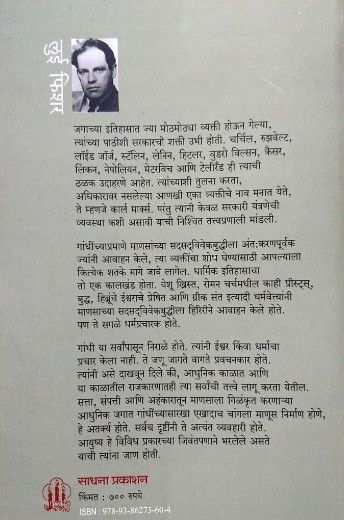 लुई फिशर
जगाच्या इतिहासात ज्या मोठमोठ्या व्यक्ती होऊन गेल्या,
त्यांच्या पाठीशी सरकारची शक्ती उभी होती. चर्चिल, रुझवेल्ट,
लॉईड जॉर्ज, स्टॅलिन, लेनिन, हिटलर, वुडरो विल्सन, कैसर,
लिंकन, नेपोलियन, मेटरविच आणि टेलीराँड ही त्याची
ठळक उदाहरणे आहेत. त्यांच्याशी तुलना करता,
अधिकारावर नसलेल्या आणखी एका व्यक्तीचे नाव मनात येते,
ते म्हणजे कार्ल मार्क्स. परंतु त्यांनी केवळ सरकारी यंत्रणेची
व्यवस्था कशी असावी याची निश्चित तत्त्वप्रणाली मांडली.
गांधींच्याप्रमाणे माणसांच्या सदसद्विवेकबुद्धीला अंतःकरणपूर्वक
ज्यांनी आवाहन केले, त्या व्यक्तीचा शोध घेण्यासाठी आपल्याला
कित्येक शतके मागे जावे लागेल. धार्मिक इतिहासाचा
तो एक कालखंड होता. येशू ख्रिस्त, रोमन चर्चमधील काही प्रीस्ट्स,
बुद्ध, हिब्रूंचे ईश्वराचे प्रेषित आणि ग्रीक संत इत्यादी धर्मवेत्त्यांनी
माणसाच्या सदसद्विवेकबुद्धीला हिरिरीने आवाहन केले होते.
पण ते सगळे धर्मप्रचारक होते.
गांधी या सर्वांपासून निराळे होते. त्यांनी ईश्वर किंवा धर्माचा
प्रचार केला नाही. ते जणू जागते वागते प्रवचनकार होते.
त्यांनी असे दाखवून दिले की, आधुनिक काळात आणि
या काळातील राजकारणातही त्या सर्वांची तत्त्वे लागू करता येतील.
सत्ता, संपत्ती आणि अहंकारातून माणसाला गिळंकृत करणाऱ्या
आधुनिक जगात गांधींच्यासारखा एखादाच चांगला माणूस निर्माण होणे,
हे अतर्क्य होते. सर्वच दृष्टींनी ते अत्यंत व्यवहारी होते.
आयुष्य हे विविध प्रकारच्या जिवंतपणाने भरलेले असते
याची त्यांना जाण होती.
साधना प्रकाशन
किंमत : ७०० रुपये
ISBN : 978-93-86273-60-4